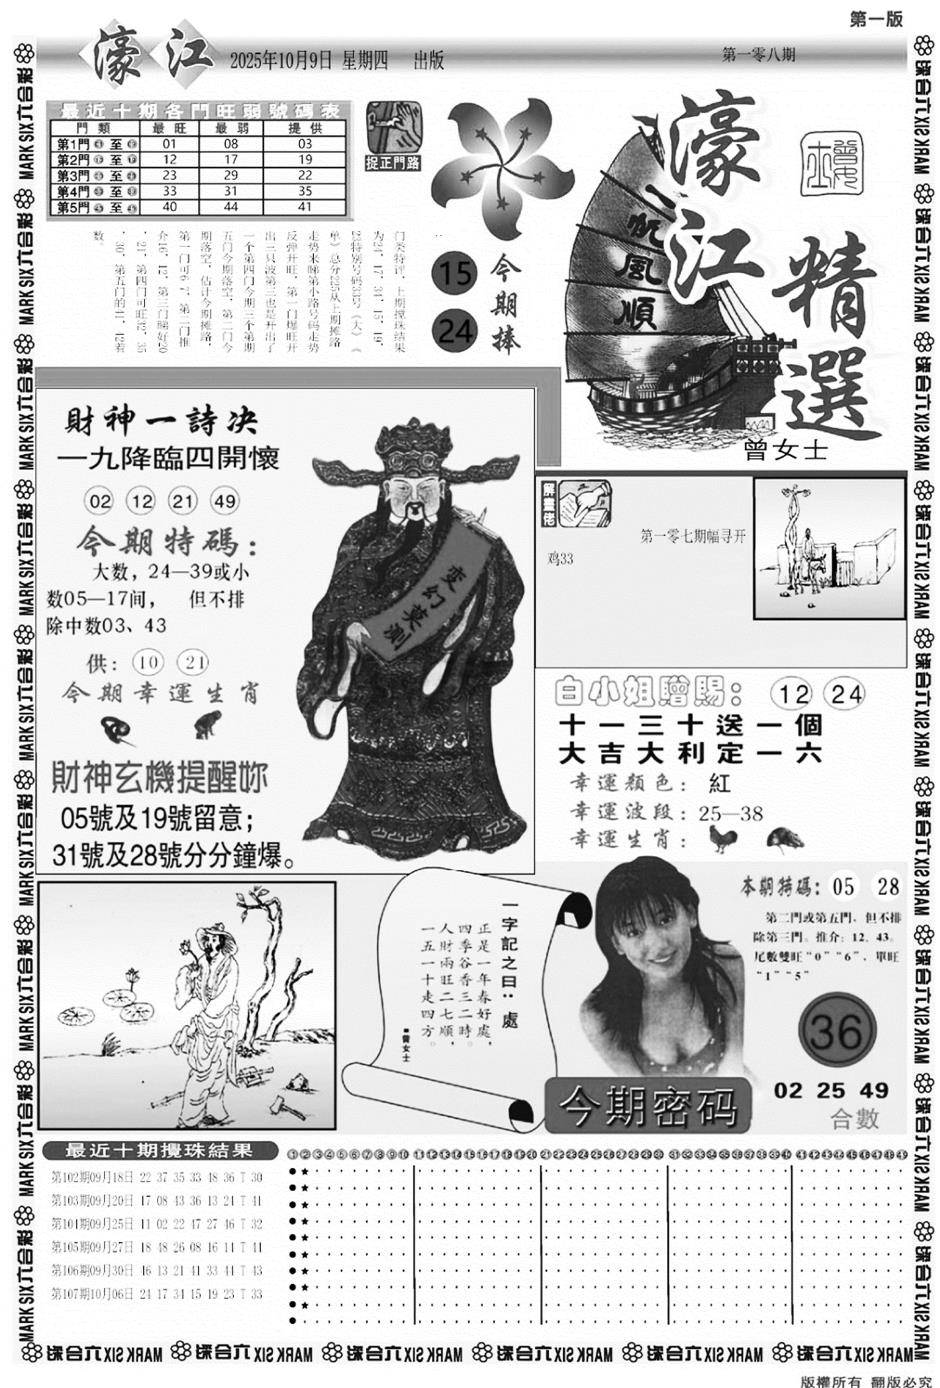 第一版
濠江 2025年10月9日 星期四 出版
第一零八期
最近十期各門旺弱號碼表
門 類 最 旺 最 弱 提 供
第1門 至 01 08 03
第2門 至 12 17 19
第3門 至 23 29 22
第4門 至 33 31 35
第5門 至 40 44 41
捉正門路
门类特评，上期搅珠结果
为24、17、34、15、19、
23特别号码33号（大）（
单）总分225从上期摊路
走势来睇第小路号码走势
反弹开旺，第一门爆旺开
出三只波第三也是开出了
一个第四门今期三个第期
五门今期落空，第二门今
期落空，估计今期摊路，
第一门可6、7，第二门推
介16、12，第三门睇好20
、21，第四门可旺挖，35
、30，第五门的41，12着
数。
今期捧
15
24
一帆風順
濠江
精選
曾女士
財神一詩决
一九降臨四開懷
02 12 21 49
今期特碼：
大数，24—39或小
数05—17间， 但不排
除中数03、43
供： 10 21
今期幸運生肖
財神玄機提醒妳
05號及19號留意；
31號及28號分分鐘爆。
变幻莫测
解畫佬
第一零七期幅寻开
鸡33
白小姐贈賜： 12 24
十一三十送一個
大吉大利定一六
幸運顏色：紅
幸運波段：25—38
幸運生肖：
一字記之曰：處
正是一年春好處，
四季谷香三二時。
人財兩旺二七順，
一五一十走四方。
■曾女士
本期特碼：05 28
第二門或第五門，但不排
除第三門。推介：12、43。
尾數雙旺“0”“6”，單旺
“1”“5”
36
02 25 49
合數
今期密码
最近十期攪珠結果
①②③④⑤⑥⑦⑧⑨⑩ ⑪⑫⑬⑭⑮⑯⑰⑱⑲⑳ ㉑㉒㉓㉔㉕㉖㉗㉘㉙㉚ ㉛㉜㉝㉞㉟㊱㊲㊳㊴㊵ ㊶㊷㊸㊹㊺㊻㊼㊽㊾
第102期09月18日 22 37 35 33 48 36 T 30
第103期09月20日 17 08 43 36 13 21 T 41
第104期09月25日 11 02 22 47 27 46 T 32
第105期09月27日 18 48 26 08 16 14 T 41
第106期09月30日 16 13 21 41 33 44 T 43
第107期10月06日 24 17 34 15 19 23 T 33
MARK SIX六合彩
版權所有 翻版必究